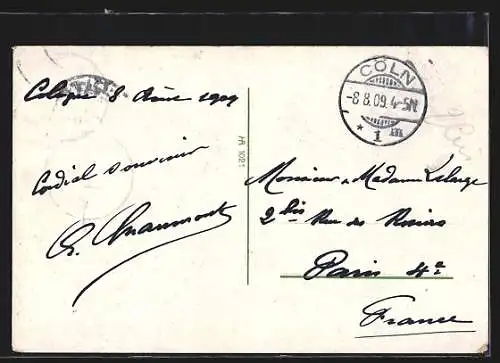 Cologne 8 Août 1909
Cordial souvenir
CÖLN
-8.8.09.4-5N
* 1 m
HA 1021
Monsieur & Madame Lelarge
2 bis Rue des Rosiers
Paris 4e
France